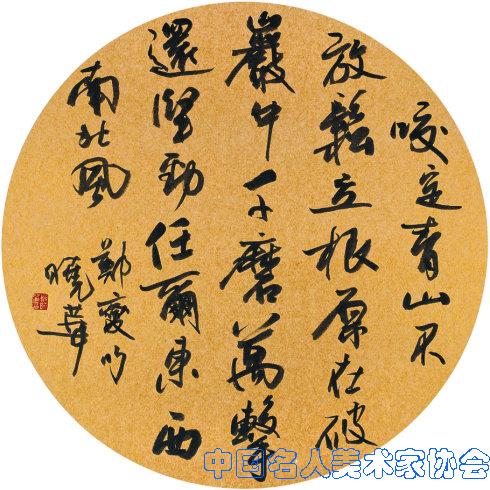 咬定青山不
放鬆立根原在破
巖中千磨萬擊
還堅勁任爾東西
南北風
鄭燮
曉華
中国名人美术家协会